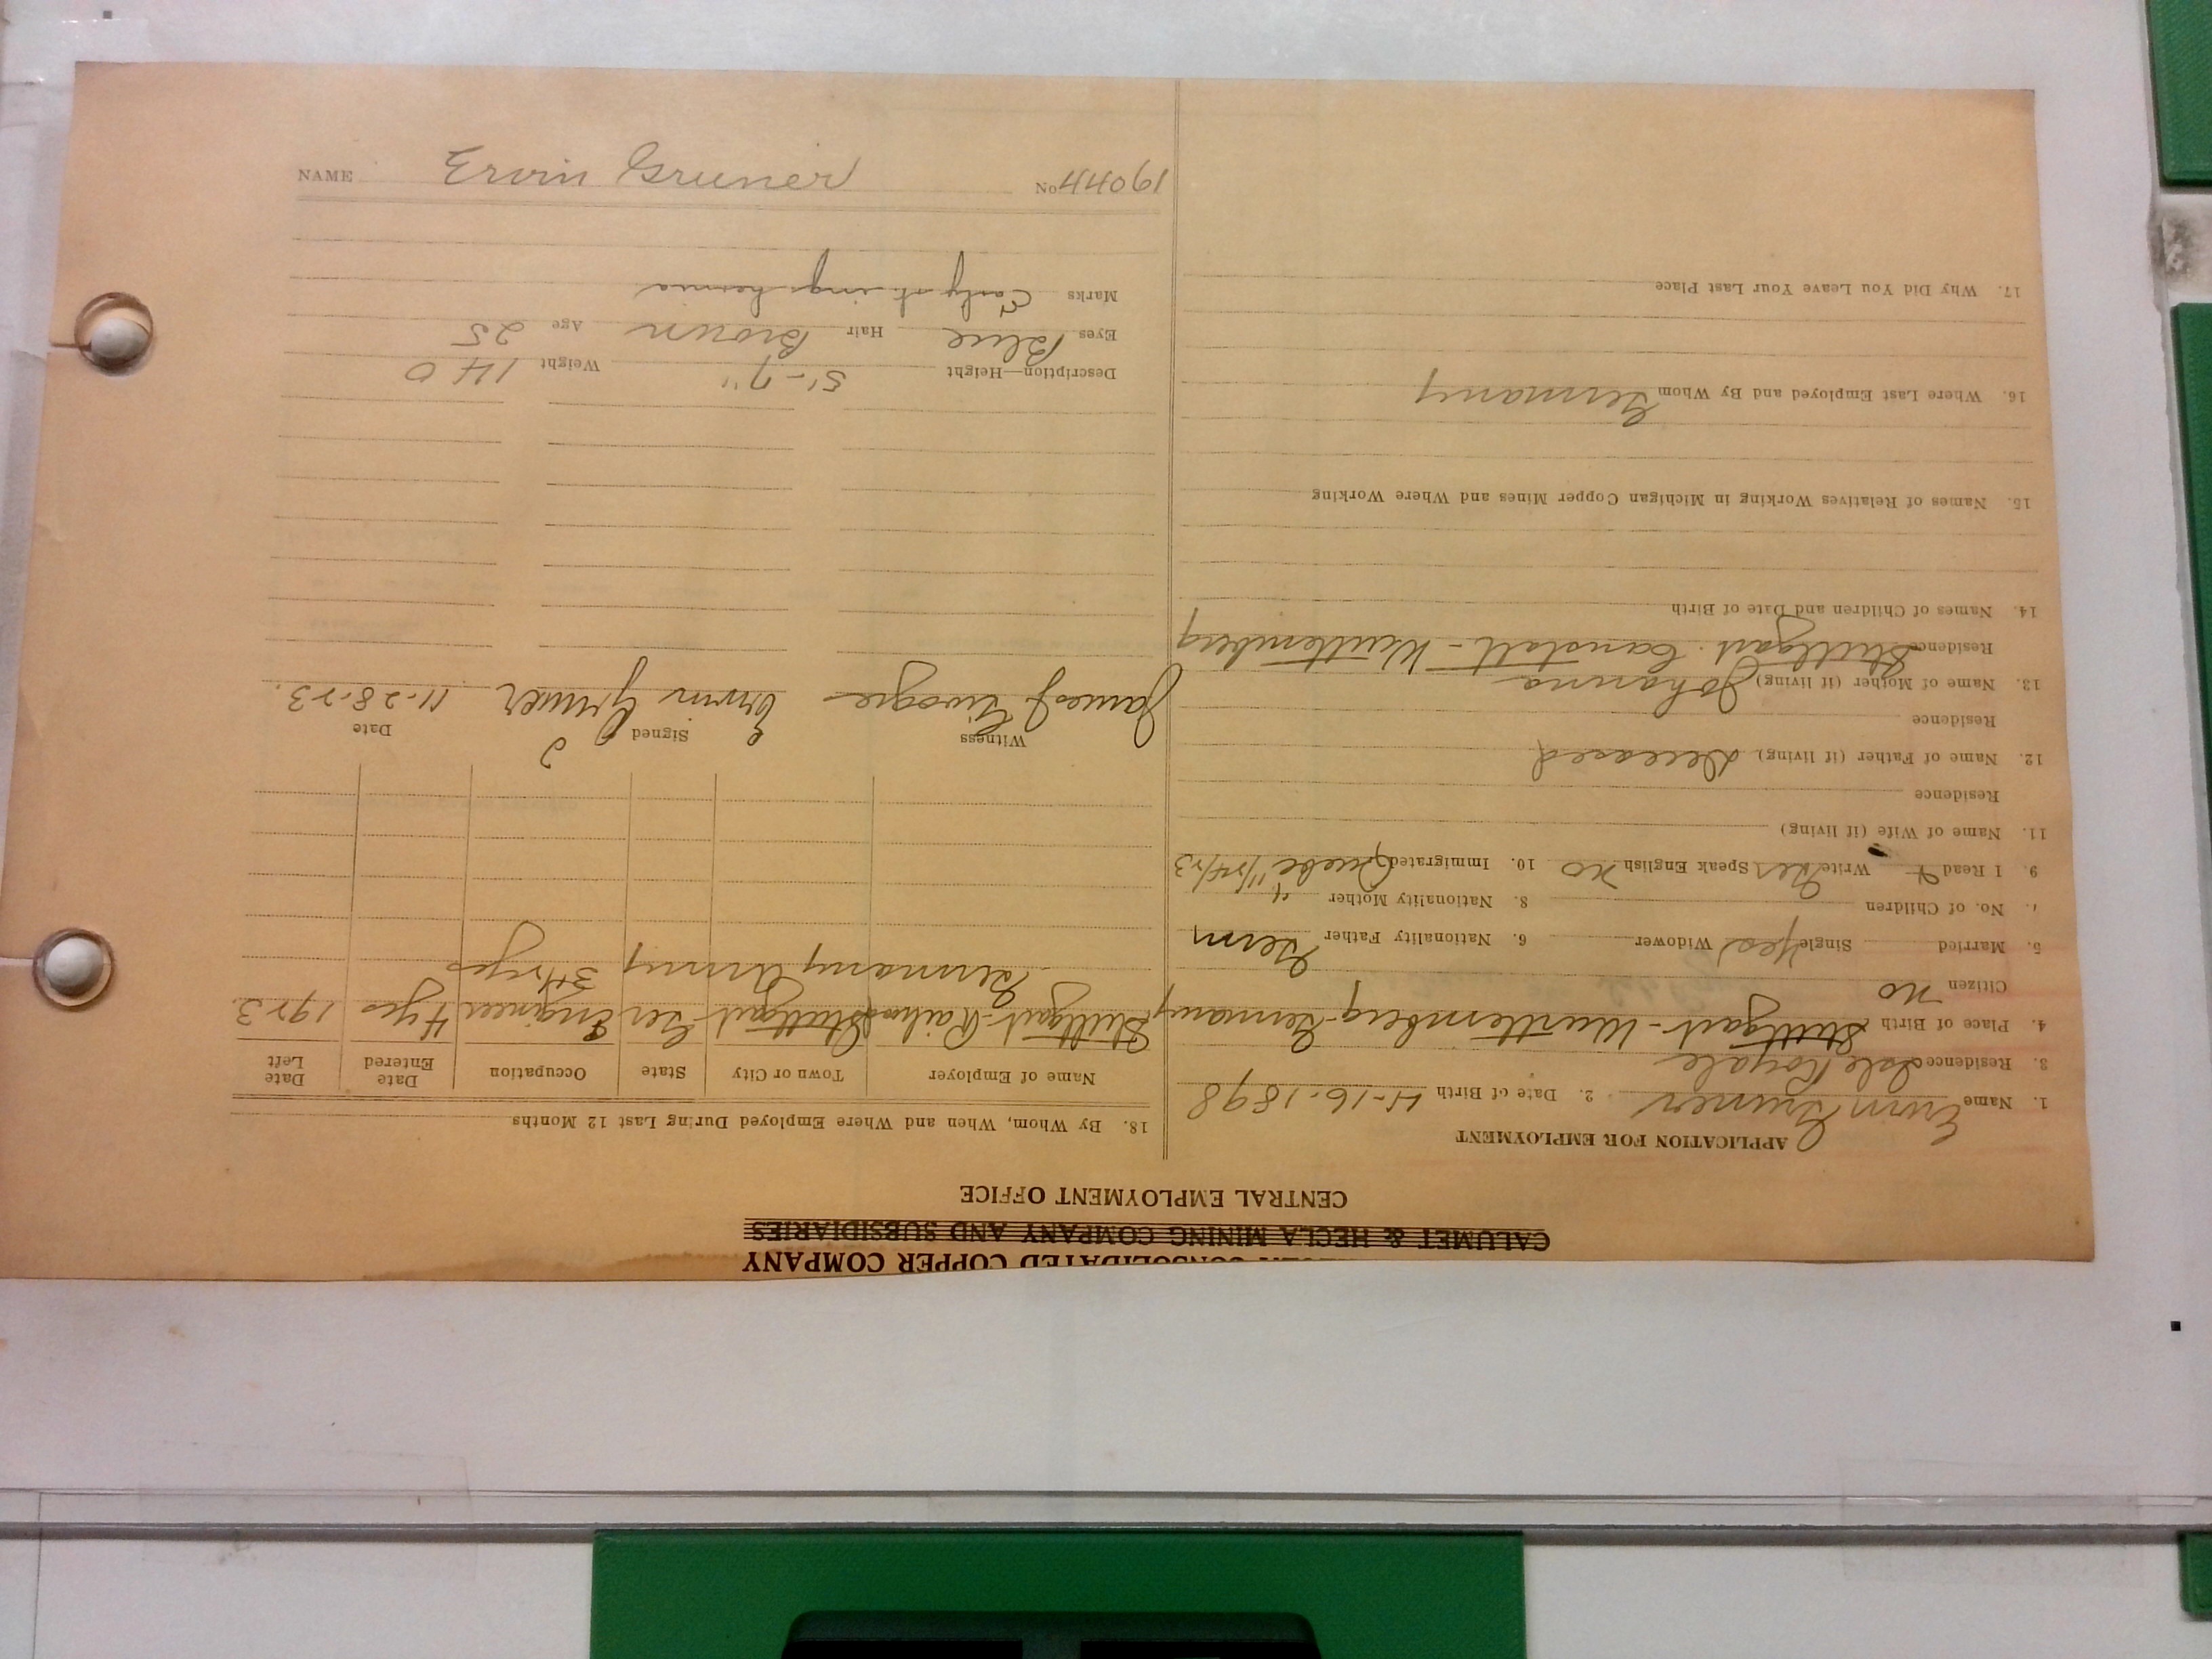 CONSOLIDATED COPPER COMPANY
CALUMET & HECLA MINING COMPANY AND SUBSIDIARIES
CENTRAL EMPLOYMENT OFFICE
APPLICATION FOR EMPLOYMENT
1. Name Erwin Gruner 2. Date of Birth 4-16-1898
3. Residence Isle Royale
4. Place of Birth Stuttgart-Wurttemberg-Germany
Citizen no
5. Married Single Yes Widower 6. Nationality Father Germ
7. No. of Children 8. Nationality Mother "
9. I Read & Write Yes Speak English no 10. Immigrated Quebec 11/24/23
11. Name of Wife (if living)
Residence
12. Name of Father (if living) deceased
Residence
13. Name of Mother (if living) Johanna
Residence Stuttgart Canstatt-Wurttemberg
14. Names of Children and Date of Birth
15. Names of Relatives Working in Michigan Copper Mines and Where Working
16. Where Last Employed and By Whom Germany
17. Why Did You Leave Your Last Place
18. By Whom, When and Where Employed During Last 12 Months
Name of Employer Town or City State Occupation Date Entered Date Left
Stuttgart-Railroad Stuttgart Ger Engineer 4 yrs 1923.
Germany Army 3½ yrs
Witness Signed Date
James J Erwin Gruner 11-28-23.
Description—Height 5'-7" Weight 140
Eyes Blue Hair Brown Age 25
Marks Early st. ing. hernia
NAME Ervin Gruner No 19044